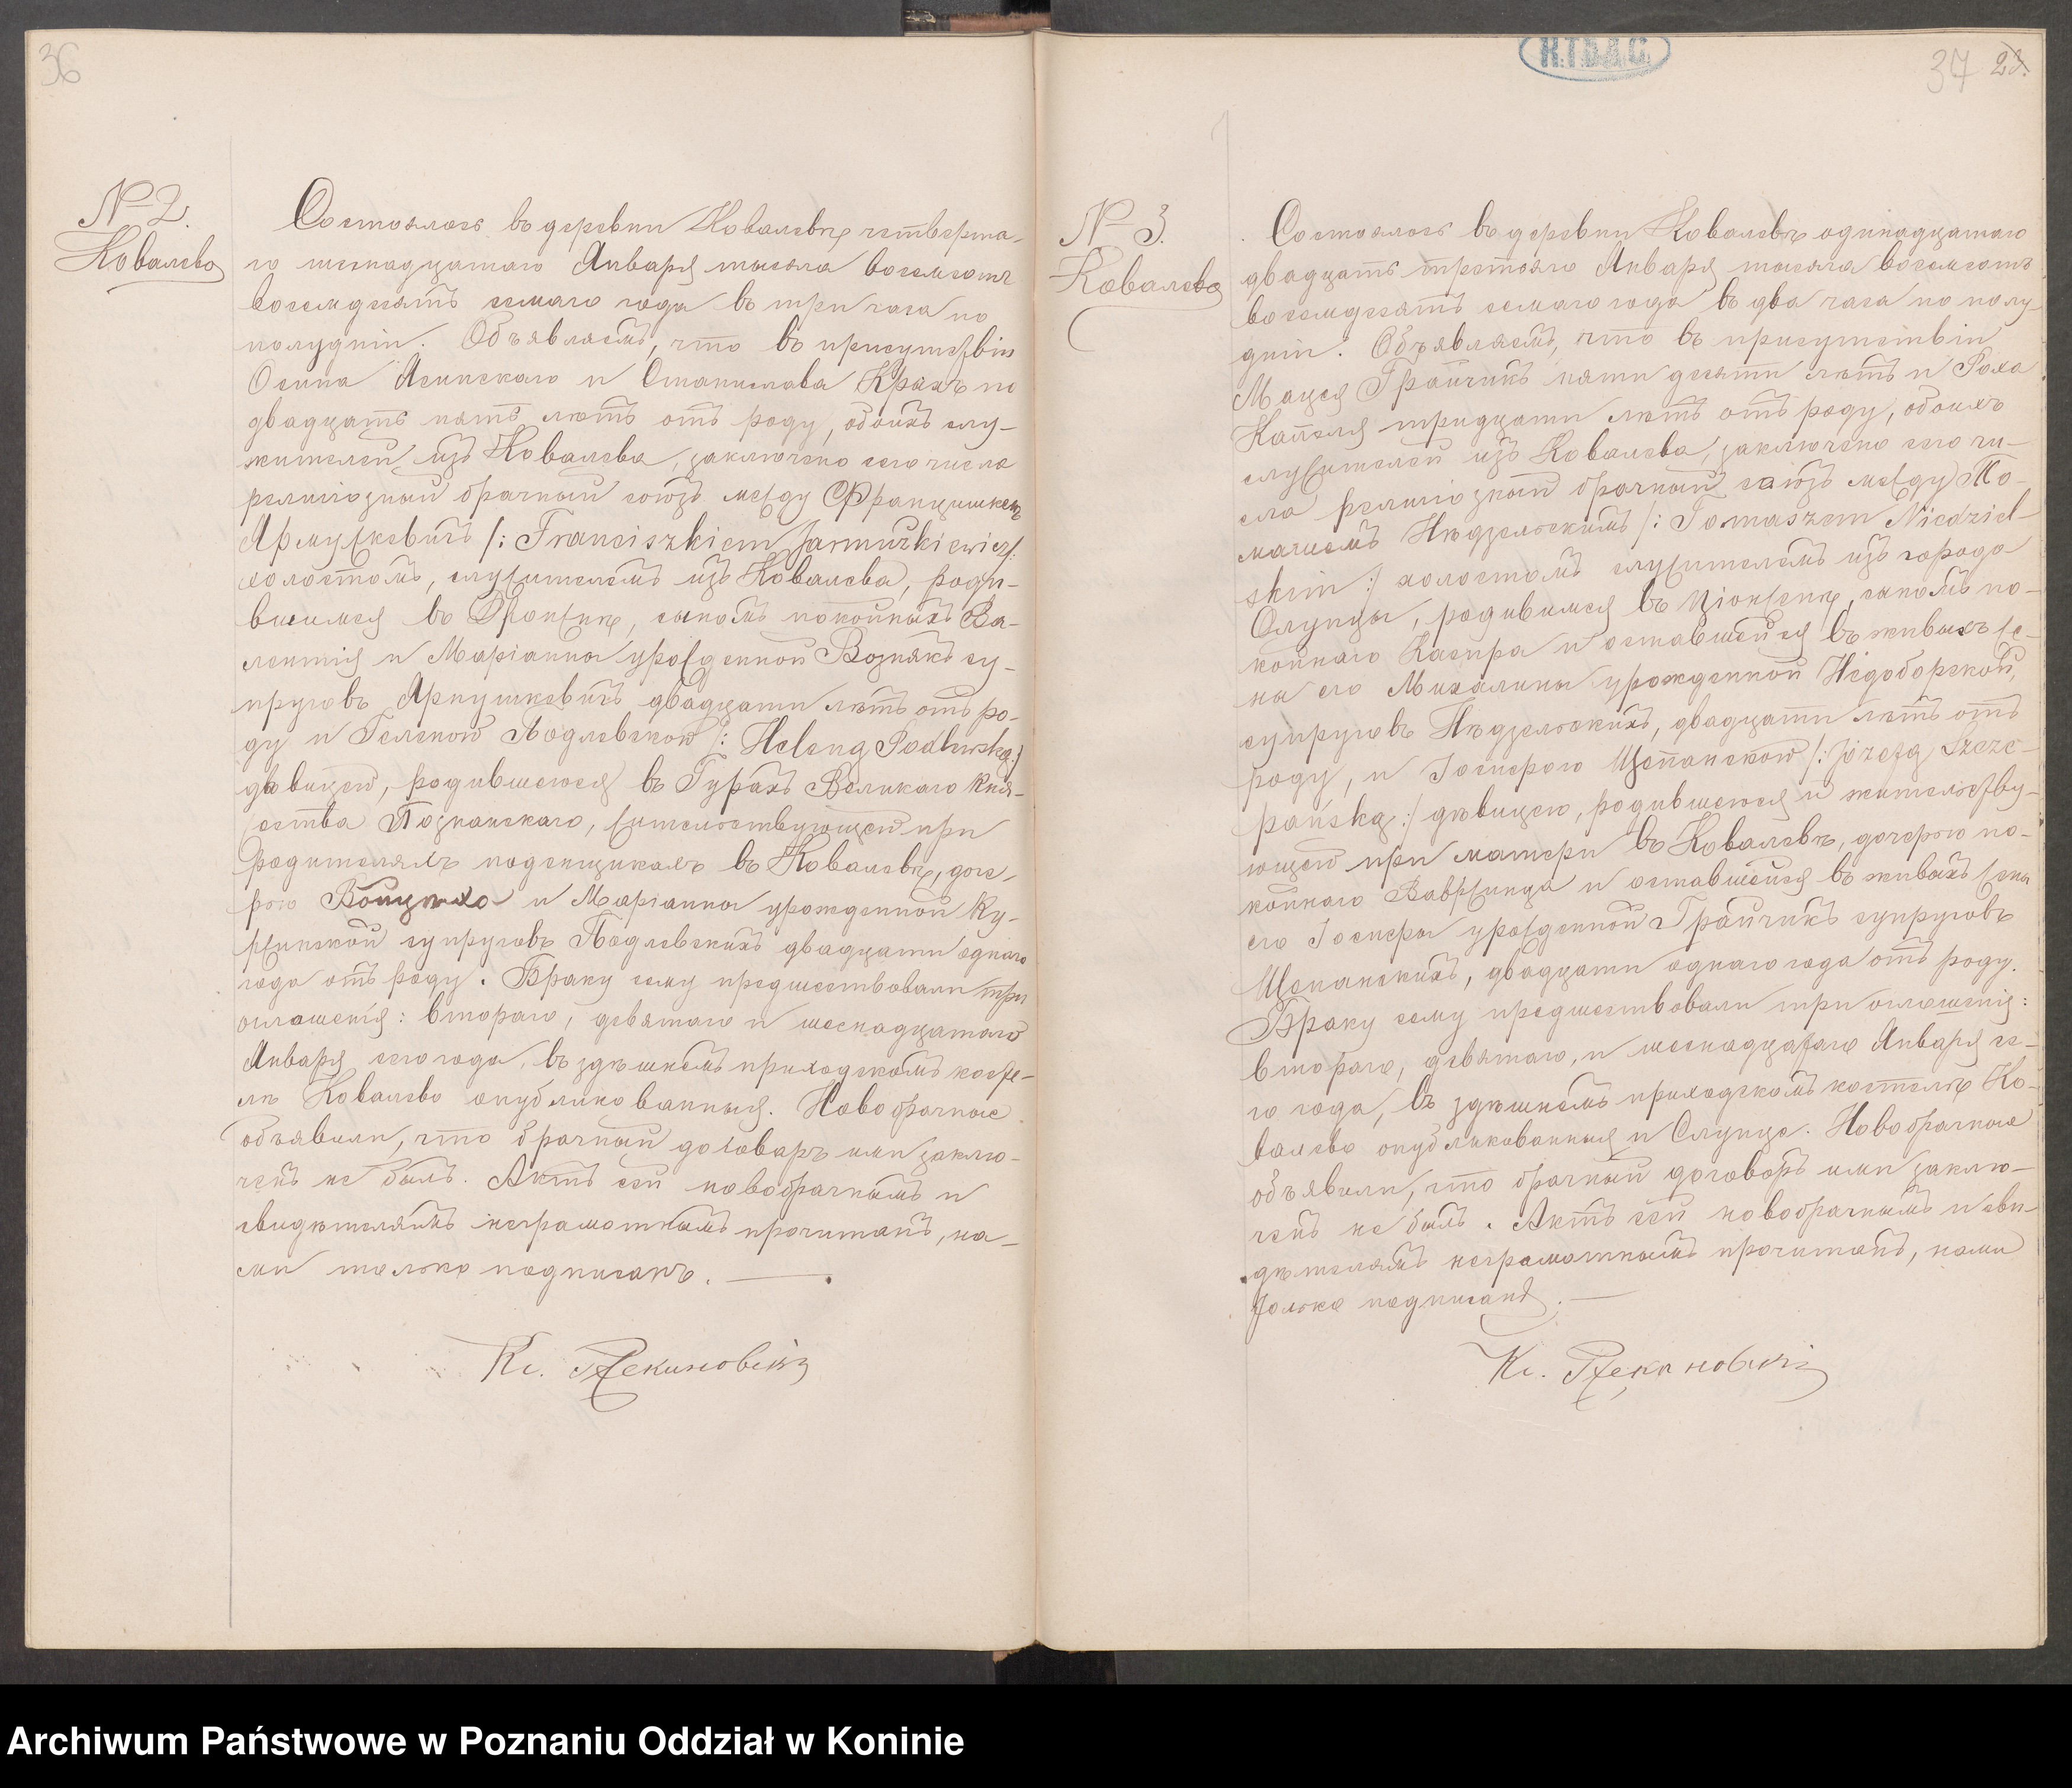 36
№ 2.
Ковалево
Состоялось въ деревни Ковалевѣ четверта-
го шеснадцатаго Января тысяча восемсотъ
восемдесятъ семаго года въ три часа по
полудніи. Объявляемъ, что въ присутствіи
Осипа Ясинскаго и Станислава Кражъ по
двадцать пять лѣтъ отъ роду, обоихъ слу-
жителей изъ Ковалева, заключено сего числа
религіозный брачный союзъ между Францишкемъ
Ярмужкевичъ /: Franciszkiem Jarmużkiewicz :/
холостомъ, служителемъ изъ Ковалева, роди-
вшимся въ сыномъ покойныхъ Ва-
лентія и Маріанны урожденной Вознякъ су-
пруговъ Ярмушкевичъ двадцати лѣтъ отъ ро-
ду и Геленою Подлевскою /: Heleną Podlewską :/
дѣвицею, родившеюся въ Гурахъ Великаго Кня-
жества Познанскаго, жительствующей при
родителяхъ поденщикахъ въ Ковалевѣ, доче-
рью Войцѣха и Маріанны урожденной Ку-
ржинской супруговъ Подлевскихъ двадцати однаго
года отъ роду. Браку сему предшествовали три
оглашенія: втораго, девятаго и шеснадцатаго
Января сего года, въ здѣшнемъ приходскомъ косте-
лѣ Ковалево опубликованныя. Новобрачные
объявили, что брачный договаръ ими заклю-
ченъ не былъ. Актъ сей новобрачнымъ и
свидѣтелямъ неграмотнымъ прочитанъ, на-
ми только подписанъ.
Кс.
H.T.D.A.G.
37 23.
№ 3.
Ковалево
Состоялось въ деревни Ковалевѣ одинадцатаго
двадцать третьяго Января тысяча восемсотъ
восемдесятъ семаго года въ два часа по полу-
дніи. Объявляемъ, что въ присутствіи
Мацея Грайчикъ пяти десяти лѣтъ и Роха
Капеля тридцати лѣтъ отъ роду, обоихъ
служителей изъ Ковалева, заключено сего чи-
сла религіозный брачный союзъ между То-
машемъ Нѣдзельскимъ /: Tomaszem Niedziel-
skim :/ холостомъ служителемъ изъ города
Слупцы, родившимся въ Ціонженѣ, сыномъ по-
койнаго Каспра и оставшейся въ живыхъ же-
на его Михалины урожденной Нѣдоборской,
супруговъ Нѣдзельскихъ, двадцати лѣтъ отъ
роду, и Іосифою Щепанскою /: Józefą Szcze-
pańską :/ дѣвицею, родившеюся и жительству-
ющей при матери въ Ковалевѣ, дочерью по-
койнаго Вавржинца и оставшейся въ живыхъ жены
его Іосифы урожденной Грайчикъ супруговъ
Щепанскихъ, двадцати однаго года отъ роду.
Браку сему предшествовали три оглашенія:
втораго, девятаго, и шеснадцатаго Января се-
го года, въ здѣшнемъ приходскомъ костелѣ Ко-
валево опубликованныя и Слупце. Новобрачные
объявили, что брачный договоръ ими заклю-
ченъ не былъ. Актъ сей новобрачнымъ и сви-
дѣтелямъ неграмотнымъ прочитанъ, нами
только подписанъ.
Кс.
Archiwum Państwowe w Poznaniu Oddział w Koninie